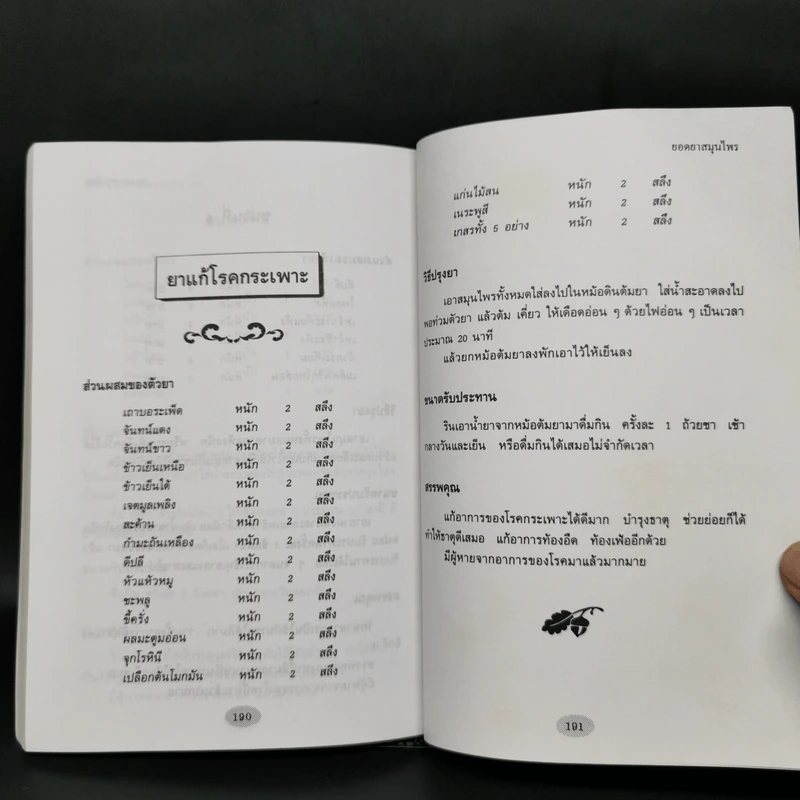 ยาแก้โรคกระเพาะ
ส่วนผสมของตัวยา
เถาบอระเพ็ด หนัก 2 สลึง
จันทน์แดง หนัก 2 สลึง
จันทน์ขาว หนัก 2 สลึง
ข้าวเย็นเหนือ หนัก 2 สลึง
ข้าวเย็นใต้ หนัก 2 สลึง
เจตมูลเพลิง หนัก 2 สลึง
สะค้าน หนัก 2 สลึง
กำมะถันเหลือง หนัก 2 สลึง
ดีปลี หนัก 2 สลึง
หัวแห้วหมู หนัก 2 สลึง
ชะพลู หนัก 2 สลึง
ขี้ครั่ง หนัก 2 สลึง
ผลมะตูมอ่อน หนัก 2 สลึง
จุกโรหินี หนัก 2 สลึง
เปลือกต้นโมกมัน หนัก 2 สลึง
190
ยอดยาสมุนไพร
แก่นไม้สน หนัก 2 สลึง
เนระพูสี หนัก 2 สลึง
เกสรทั้ง 5 อย่าง หนัก 2 สลึง
วิธีปรุงยา
เอาสมุนไพรทั้งหมดใส่ลงไปในหม้อดินต้มยา ใส่น้ำสะอาดลงไป
พอท่วมตัวยา แล้วต้ม เคี่ยว ให้เดือดอ่อน ๆ ด้วยไฟอ่อน ๆ เป็นเวลา
ประมาณ 20 นาที
แล้วยกหม้อต้มยาลงพักเอาไว้ให้เย็นลง
ขนาดรับประทาน
รินเอาน้ำยาจากหม้อต้มยามาดื่มกิน ครั้งละ 1 ถ้วยชา เช้า
กลางวันและเย็น หรือดื่มกินได้เสมอไม่จำกัดเวลา
สรรพคุณ
แก้อาการของโรคกระเพาะได้ดีมาก บำรุงธาตุ ช่วยย่อยก็ได้
ทำให้ธาตุดีเสมอ แก้อาการท้องอืด ท้องเฟ้ออีกด้วย
มีผู้หายจากอาการของโรคมาแล้วมากมาย
191